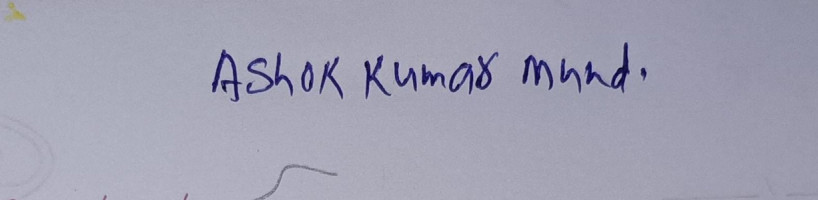 Ashok Kumar Mund.